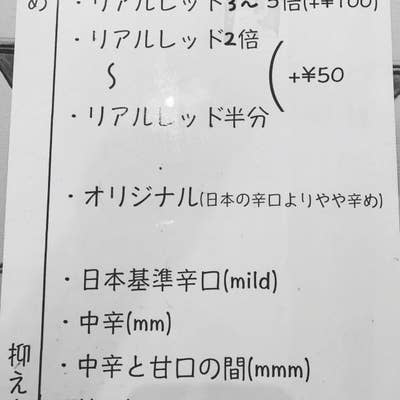 ・リアルレッド3〜5倍(+¥100)
・リアルレッド2倍
〜
+¥50
・リアルレッド半分
・オリジナル(日本の辛口よりやや辛め)
・日本基準辛口(mild)
・中辛(mm)
・中辛と甘口の間(mmm)
め
抑え